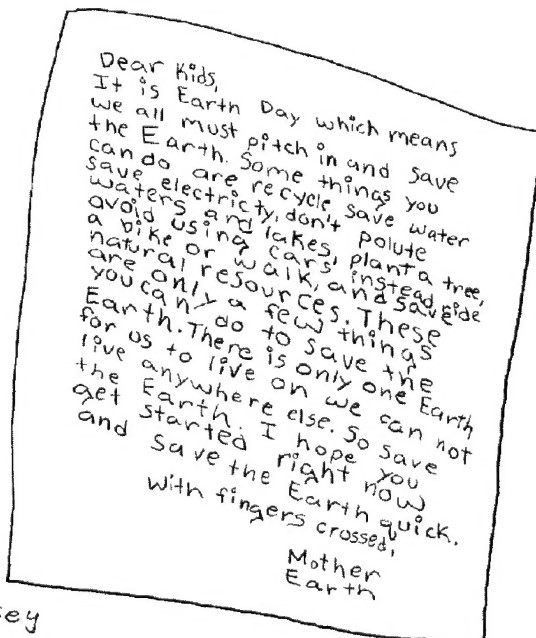 Dear Kids,
It is Earth Day which means
we all must pitch in and save
the Earth. Some things you
can do are recycle, save water
save electricty, don't polute
waters and lakes, plant a tree,
avoid using cars instead ride
a bike or walk, and save
natural resources. These
are only a few things
you can do to save the
Earth. There is only one Earth
for us to live on we can not
live anywhere else. So save
the Earth. I hope you
get started right now
and save the Earth quick.
With fingers crossed,
Mother
Earth